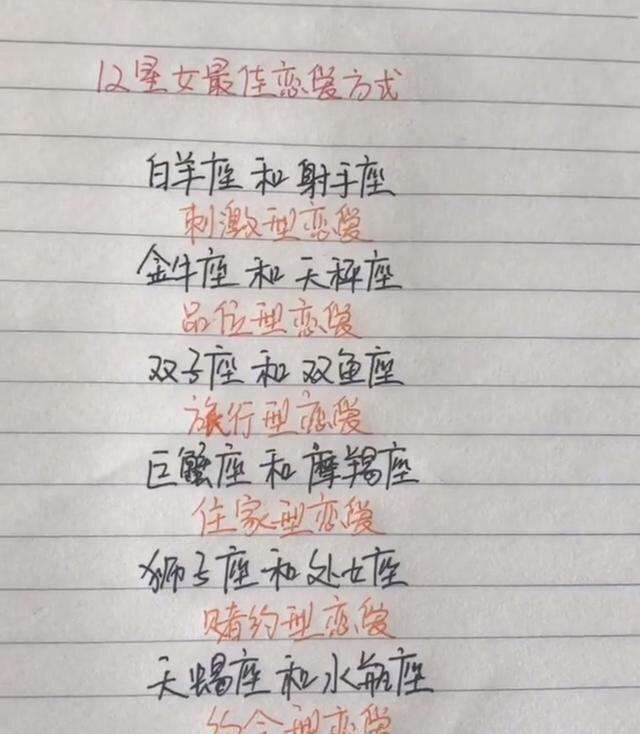 12星女最佳恋爱方式
白羊座和射手座
刺激型恋爱
金牛座和天秤座
品位型恋爱
双子座和双鱼座
旅行型恋爱
巨蟹座和摩羯座
住家型恋爱
狮子座和处女座
赌约型恋爱
天蝎座和水瓶座
约会型恋爱